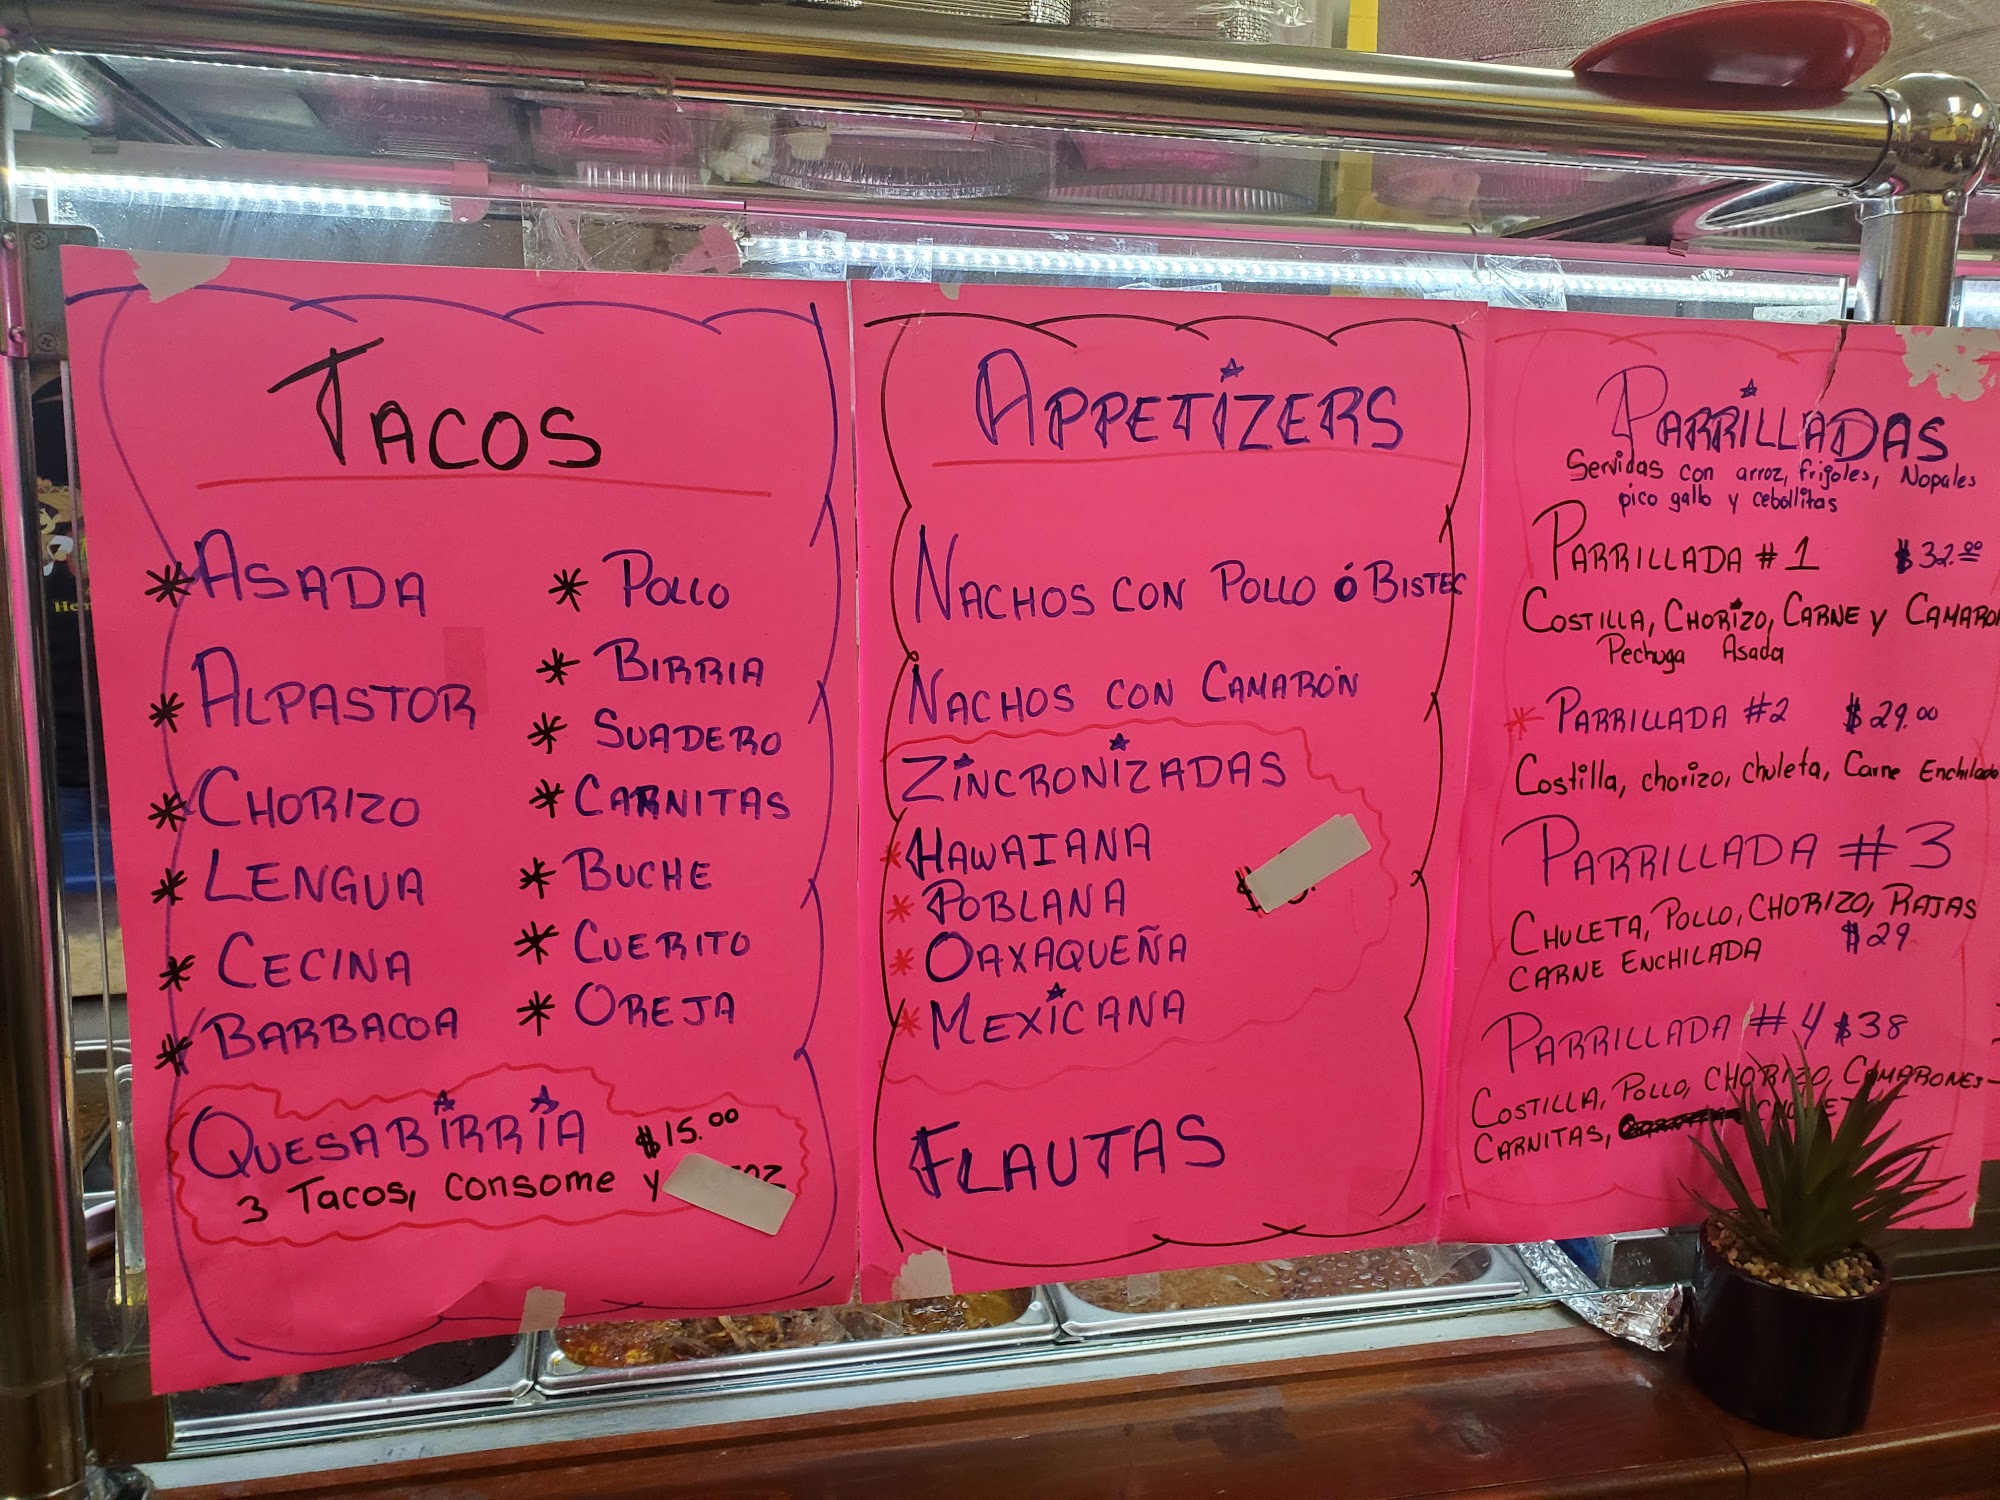 TACOS
* ASADA
* ALPASTOR
* CHORIZO
* LENGUA
* CECINA
* BARBACOA
* POLLO
* BIRRIA
* SUADERO
* CARNITAS
* BUCHE
* CUERITO
* OREJA
QUESABIRRIA $15.00
3 Tacos, consome y
APPETIZERS
NACHOS CON POLLO Ó BISTEC
NACHOS CON CAMARÓN
ZINCRONIZADAS
* HAWAIANA
* POBLANA
* OAXAQUEÑA
* MEXICANA
FLAUTAS
PARRILLADAS
Servidas con arroz, frijoles, Nopales
pico gallo y cebollitas
PARRILLADA #1 $32.00
COSTILLA, CHORIZO, CARNE y CAMARON
Pechuga Asada
* PARRILLADA #2 $29.00
Costilla, chorizo, chuleta, Carne Enchilada
PARRILLADA #3
CHULETA, POLLO, CHORIZO, RAJAS
CARNE ENCHILADA $29
PARRILLADA #4 $38
COSTILLA, POLLO, CHORIZO, CAMARONES
CARNITAS,